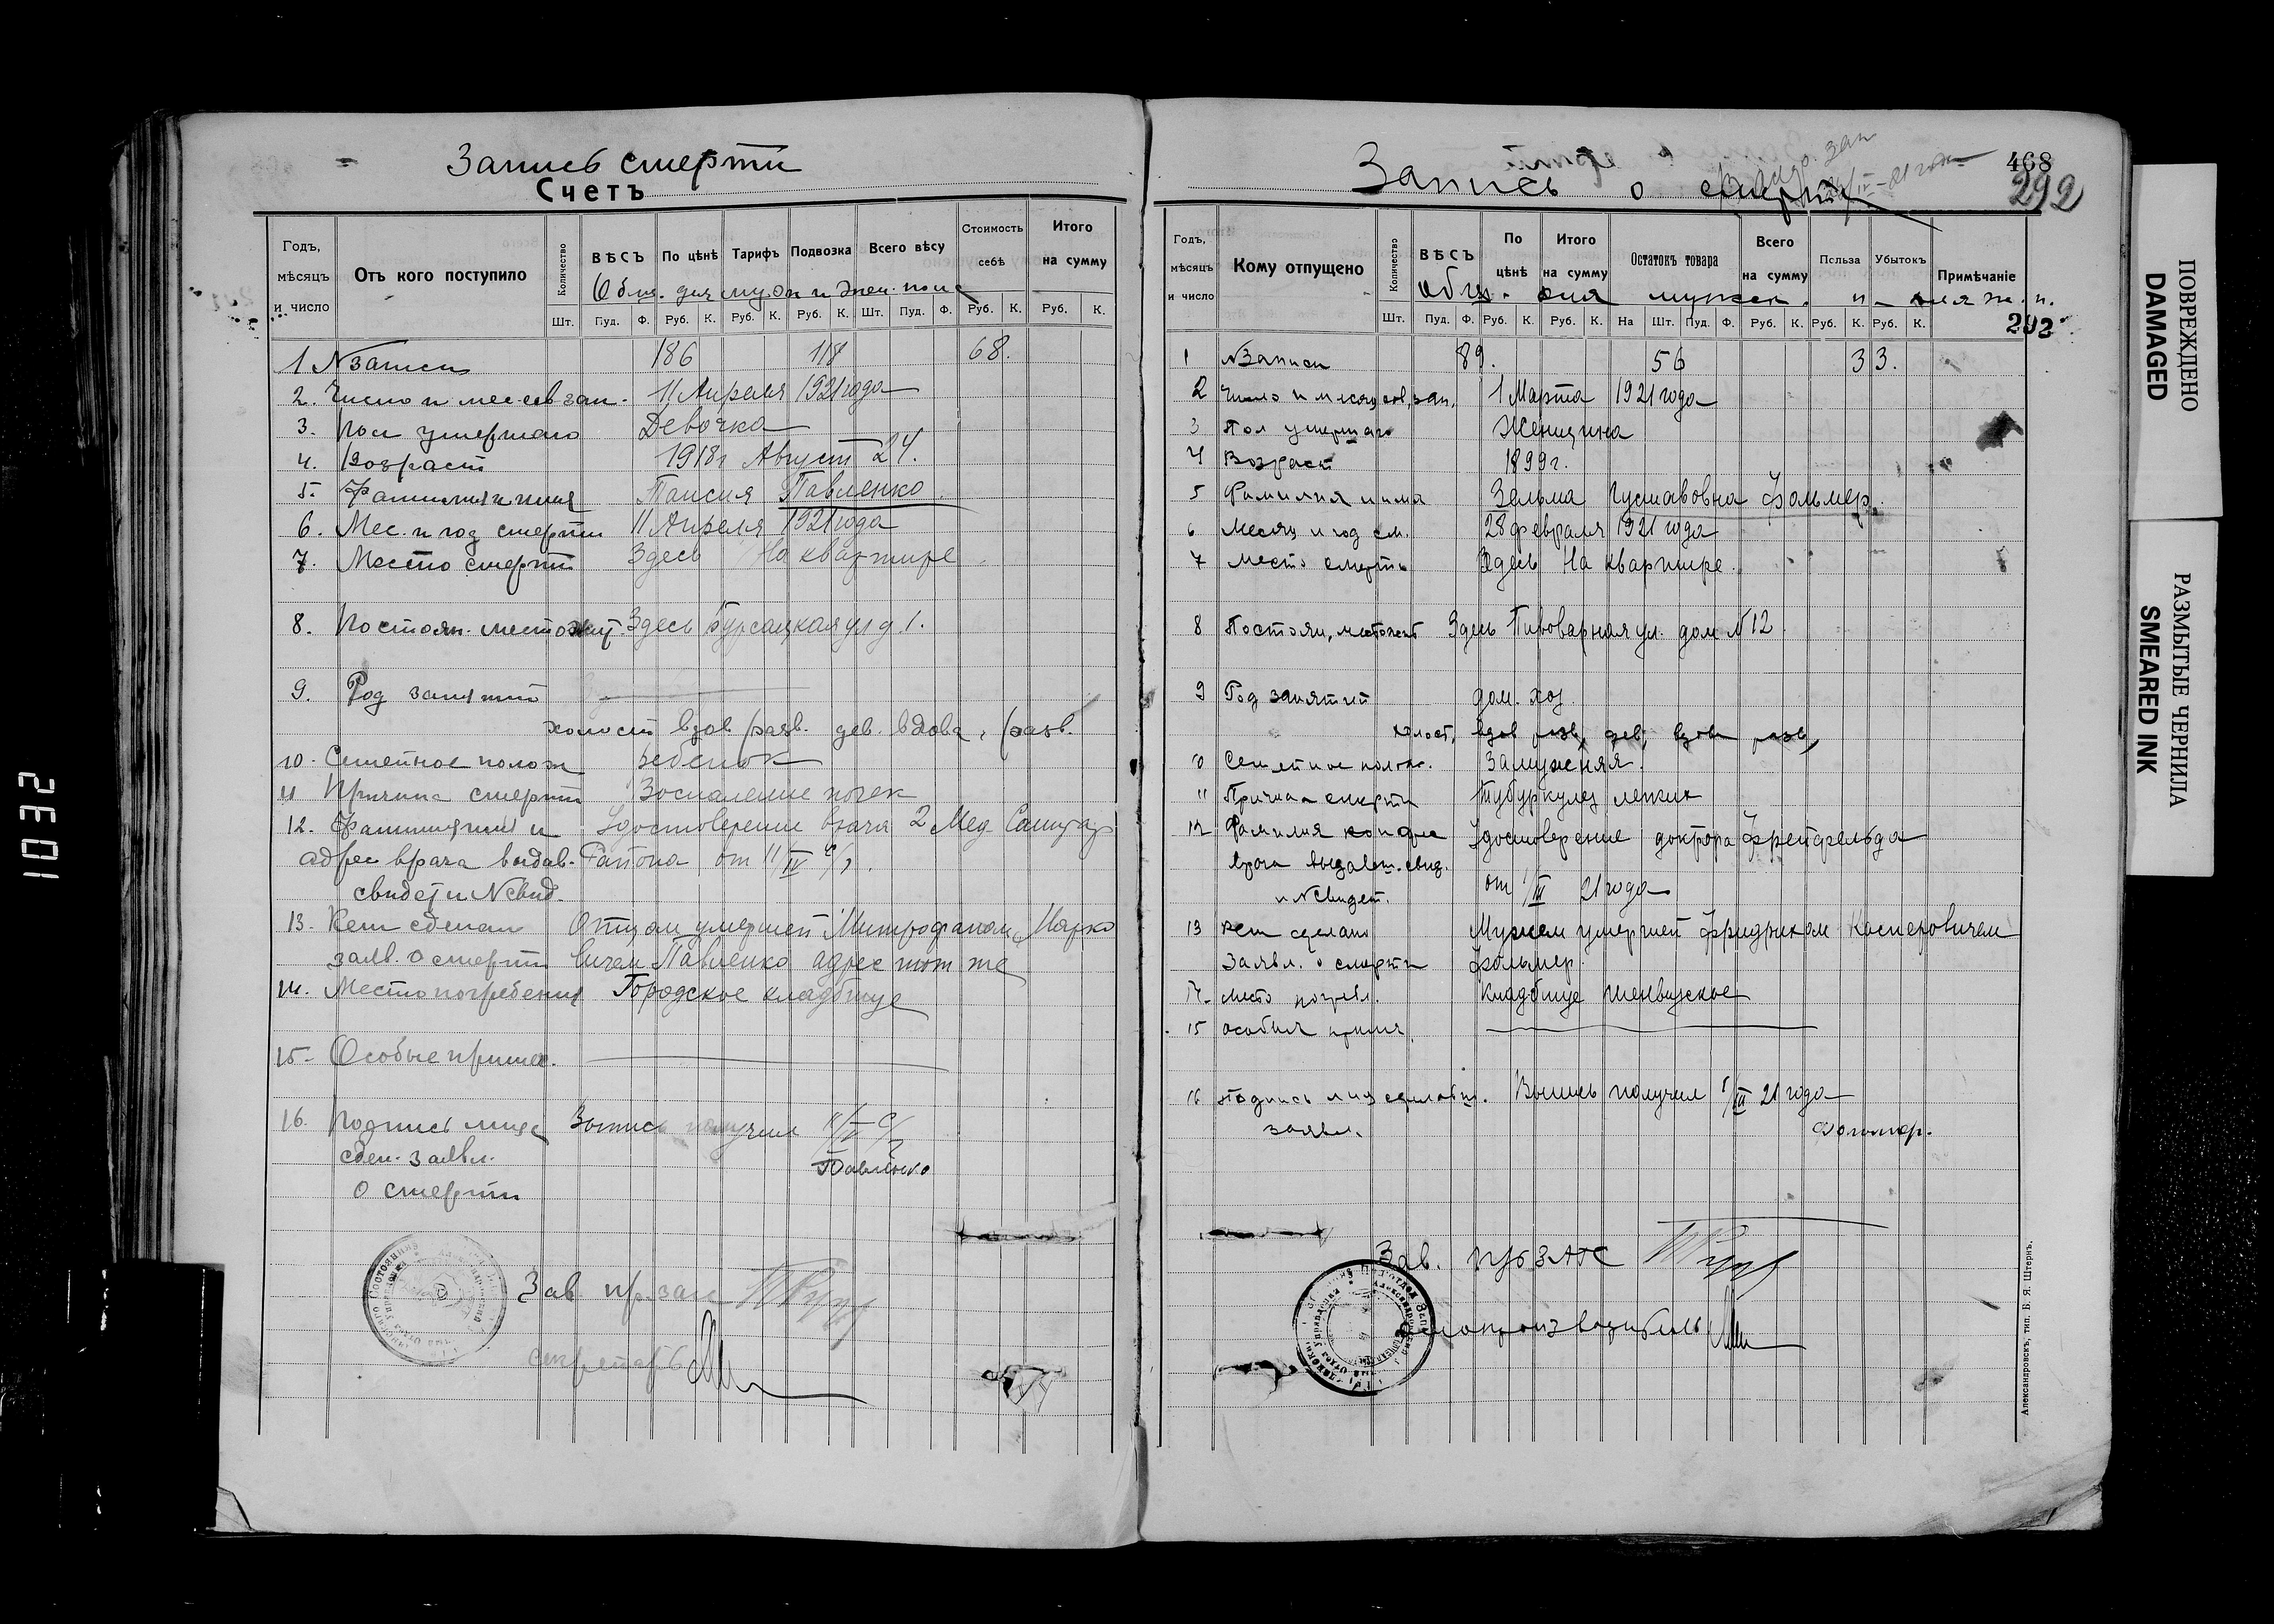 Запись смерти
Счетъ
Годъ, мѣсяцъ и число
Отъ кого поступило
Количество
ВѢСЪ
По цѣнѣ
Тарифъ
Подвозка
Всего вѣсу
Стоимость себѣ
Итого на сумму
Общ. для муж. и
Шт. Пуд. Ф. Руб. К. Руб. К. Руб. К. Шт. Пуд. Ф. Руб. К. Руб. К.
1 N записи 186 118 68.
2. Число и мес. сов зап. 11 Апреля 1921 года
3. Пол умершаго Девочка
4. Возраст 1918 г Август 24.
5. Фамилия и имя Таисия Павленко.
6. Мес. и год смерти 11 Апреля 1921 года
7. Место смерти Здесь На квартире
8. Постоян. местожит. Здесь Бурсацкая ул д. 1.
9. Род занятий
холост вдов. разв. дев. вдова, разв.
10. Семейное полож ребенок
11 Причина смерти Воспаление почек
12. Фамилия имя и Удостоверение врача 2 Мед. Санитар
адрес врача выдав. Района от 11/IV
свидет и N свид.
13. Кем сделано Отцом умершей Митрофаном Марко
заяв. о смерти вичем Павленко адрес тот же
14. Место погребения Городское кладбище
15. Особые примеч.
16. Подпись лица Выпись получил 11/IV
сдел. заявл. Павленко
о смерти
Зав.
секретарь
468
292
Запись о смерти
Годъ, мѣсяцъ и число
Кому отпущено
Количество
ВѢСЪ
По цѣнѣ
Итого на сумму
Остатокъ товара
Всего на сумму
Польза
Убытокъ
Примѣчаніе
Общ. для мужск. и для ж. п.
Шт. Пуд. Ф. Руб. К. Руб. К. На Шт. Пуд. Ф. Руб. К. Руб. К. Руб. К.
1 N Записи 89. 56 33.
2 Число и месяц сов. зап. 1 Марта 1921 года
3 Пол умершаго Женщина
4 Возраст 1899 г.
5 Фамилия и имя Зельма Густавовна Фольмер.
6 Месяц и год см. 28 февраля 1921 года
7 Место смерти Здесь На квартире.
8 Постоян. местожит Здесь Пивоварная ул. дом N 12
9 Род занятий дом. хоз.
холост, вдов разв, дев, вдова разв,
10 Семейное полож. Замужняя.
11 Причина смерти Туберкулез легких
12 Фамилия Удостоверение доктора Фрейфельда
врача выдавш. свид.
и N свидет. от 1/III 21 года
13 Кем сделано Мужем умершей Фридрихом Касперовичем
Заявл. о смерти Фольмер.
14 Место погребл. Кладбище Шенвизское
15 особыя примеч.
16 Подпись лиц сделавш. Выпись получил 1/III 21 года
заявл. Фольмер.
Зав. ЗАГС
делопроизводитель
Александровскъ, тип. Б. Я. Штернъ.
ПОВРЕЖДЕНО
DAMAGED
РАЗМЫТЫЕ ЧЕРНИЛА
SMEARED INK